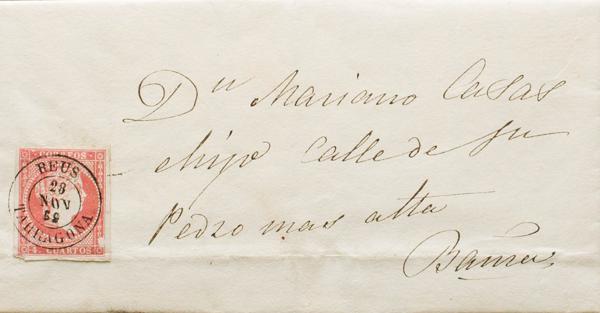 Dn Mariano Casas
é hijo Calle de Sn
Pedro mas alta
Barna
CORREOS
REUS
28
NOV
59
TARRAGONA
CUARTOS